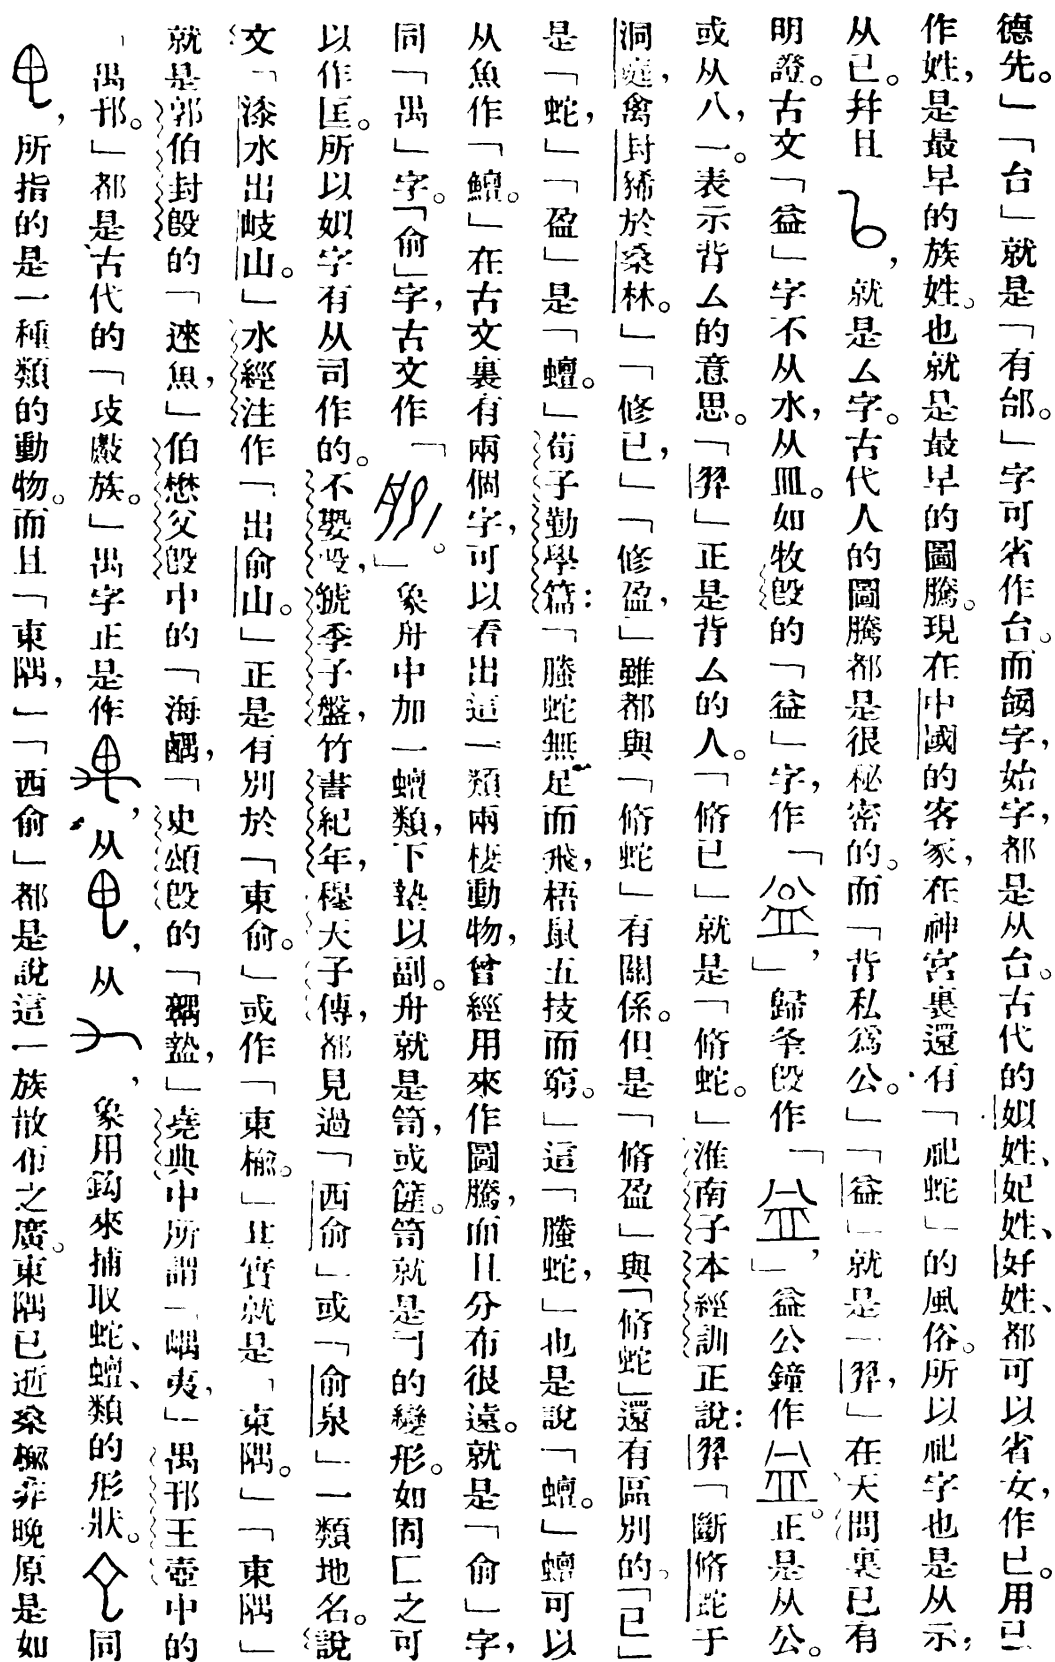 德先。」「台」就是「有邰。」字可省作台。而䛐字，始字，都是从台。古代的姒姓、妃姓、好姓、都可以省女，作已。用已
作姓，是最早的族姓。也就是最早的圖騰。現在中國的客家，在神宮裏還有「祀蛇」的風俗。所以祀字也是从示，
从已。幷且，就是厶字。古代人的圖騰都是很秘密的。而「背私爲公。」「益」就是「羿，」在天問裏已有
明證。古文「益」字不从水，从皿。如牧𣪘的「益」字，作「」，歸夆𣪘作「」，益公鐘作。正是从公。
或从八，一。表示背厶的意思。「羿」正是背厶的人。「脩已」就是「脩蛇。」淮南子本經訓正說：羿「斷脩蛇于
洞庭，禽封豨於桑林。」「修已，」「修盈，」雖都與「脩蛇」有關係。但是「脩盈」與「脩蛇」還有區別的。「已」
是「蛇，」「盈」是「蟺。」荀子勤學篇：「螣蛇無足而飛，梧鼠五技而窮。」這「螣蛇，」也是說「蟺。」蟺可以
从魚作「鱣。」在古文裏有兩個字，可以看出這一類兩棲動物，曾經用來作圖騰，而且分布很遠。就是「俞」字，
同「禺」字。「俞」字，古文作「」。象舟中加一蟺類，下墊以副。舟就是筒，或簁。筒就是𠃌的變形。如固匚之可
以作匡。所以姒字有从司作的。不𡢁𣪘，虢季子盤，竹書紀年，穆天子傳，都見過「西俞」或「俞泉」一類地名。說
文「漆水出岐山。」水經注作「出俞山。」正是有別於「東俞。」或作「東榆。」其實就是「東隅。」「東隅」
就是郭伯封𣪘的「逨魚，」伯懋父𣪘中的「海𩺰，」史頌𣪘的「𩺰盩，」堯典中所謂「嵎夷，」禺邗王壺中的
「禺邗。」都是古代的「攻𢾾族。」禺字正是作，从，从，象用鈎來捕取蛇、蟺、類的形狀。同
，所指的是一種類的動物。而且「東隅，」「西俞」都是說這一族散布之廣。東隅已逝桑榆非晚原是如